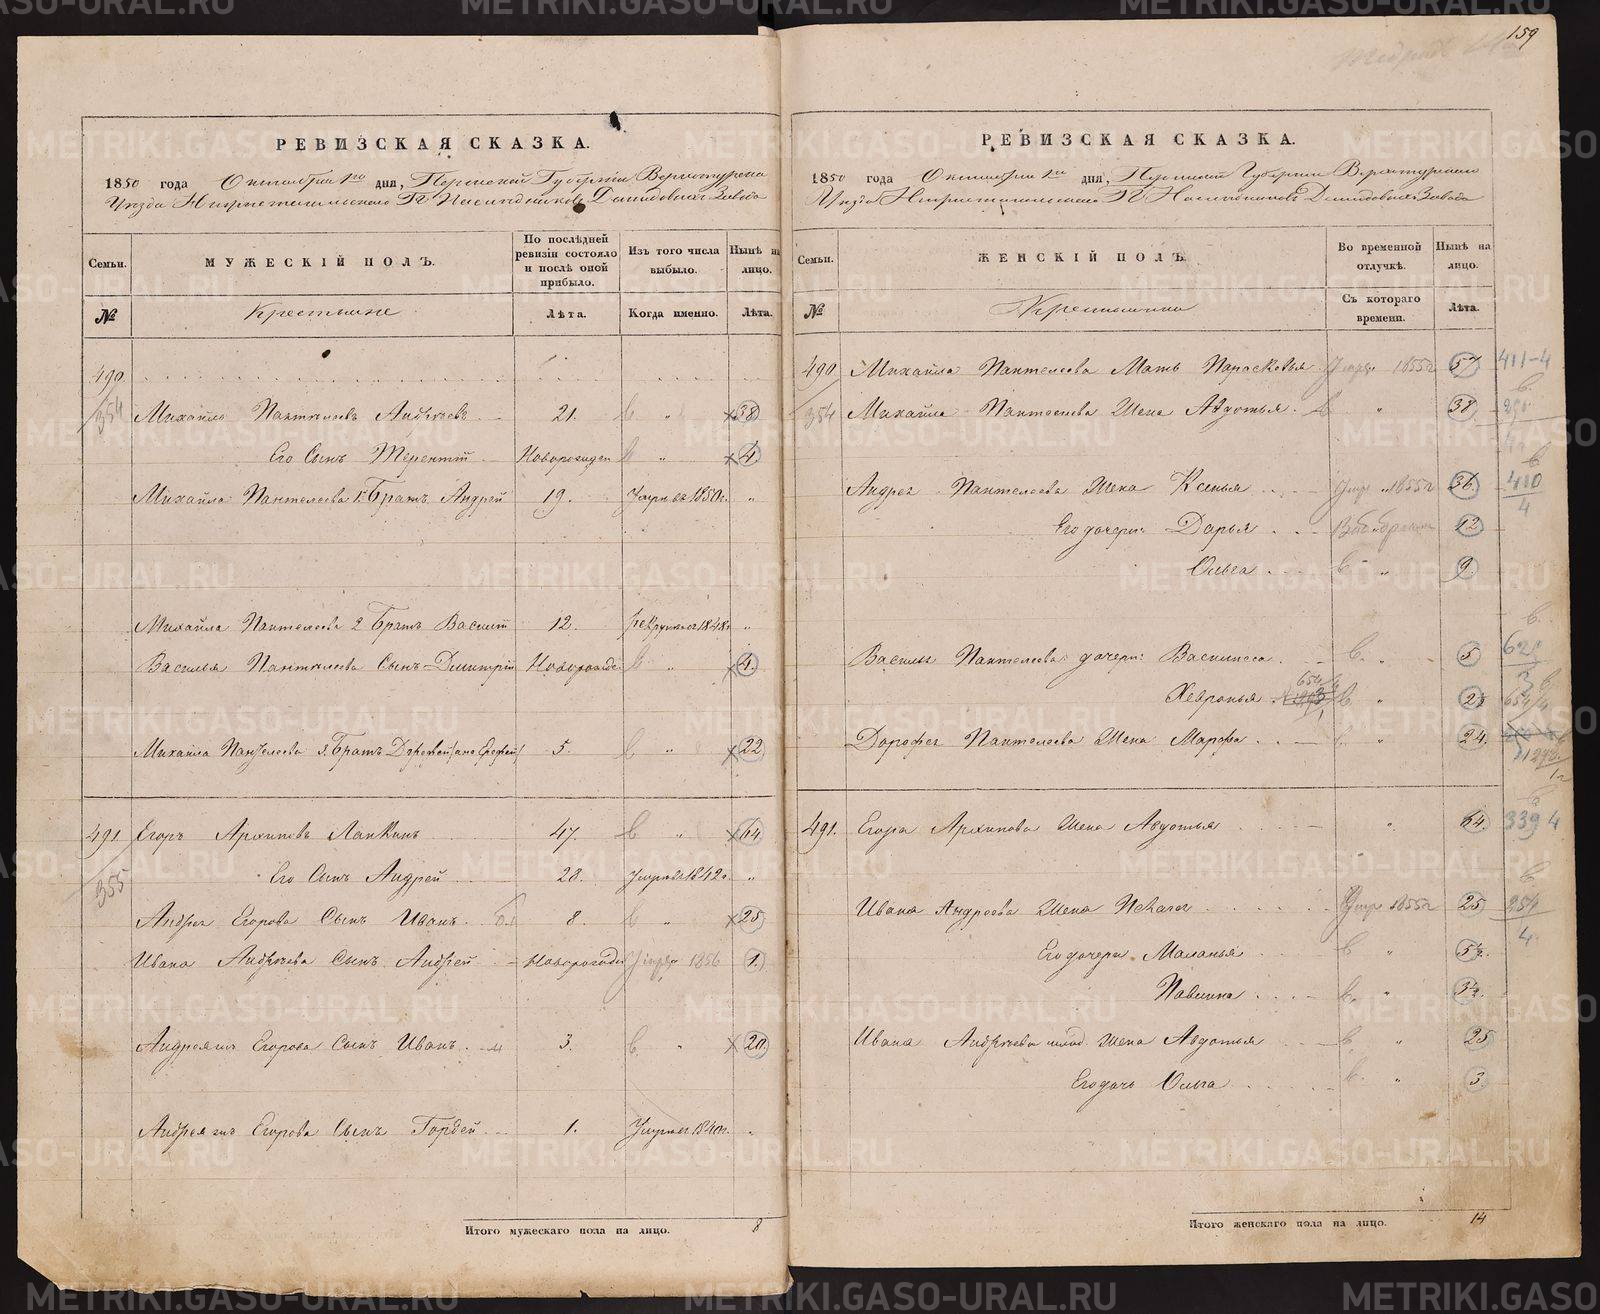 159
РЕВИЗСКАЯ СКАЗКА.
1850 года Октября 1го дня, Пермской Губерніи Верхотурскаго
Уѣзда Нижнетагильскаго Гг Наслѣдниковъ Демидовыхъ Завода
Семьи.
МУЖЕСКІЙ ПОЛЪ.
По послѣдней ревизіи состояло и послѣ оной прибыло.
Изъ того числа выбыло.
Нынѣ на лицо.
№
Крестьяне
Лѣта.
Когда именно.
Лѣта.
490
354
Михайло Пантелеевъ Андреевъ 21. " 38
Его Сынъ Терентій Новорожден " 4
Михайла Пантелеева 1й Братъ Андрей 19. Умеръ въ 1850г. "
Михайла Пантелеева 2 Братъ Василій 12. рекрутъ въ 1848г "
Василья Пантелеева Сынъ Дмитрій Новорожде " 4.
Михайла Пантелеева 3. Братъ Дорофей 5. " 22
491
355
Егоръ Архиповъ Лапкинъ 47. " 64
Его Сынъ Андрей 28. Умеръ въ 1842г "
Андрея Егорова Сынъ Иванъ 8. " 25
Ивана Андреева Сынъ Андрей Новорожде Умеръ 1856 1.
Андрея Егорова Сынъ Иванъ м 3. " 20
Андрея Егорова Сынъ Гордей 1. Умеръ въ 1840г. "
Итого мужескаго пола на лицо. 8
РЕВИЗСКАЯ СКАЗКА.
1850 года Октября 1го дня, Пермской Губерніи Верхотурскаго
Уѣзда Нижнетагильскаго Гг Наслѣдниковъ Демидовыхъ Завода
Семьи.
ЖЕНСКІЙ ПОЛЪ.
Во временной отлучкѣ.
Нынѣ на лицо.
№
Крестьянки
Съ котораго времени.
Лѣта.
490
354
Михайла Пантелеева Мать Парасковья Умерла 1855г 57 411-4
Михайла Пантелеева Жена Авдотья. " 38
Андрея Пантелеева Жена Ксенья Умер 1855г 36. 410
4
Его дочери: Дарья 12
Ольга " 9.
Василья Пантелеева дочери: Василиса " 5
Хевронья 654 " 654/4
Дорофея Пантелеева Жена Марфа " 24.
491.
Егора Архипова Жена Авдотья " 64. 339 4
Ивана Андреева Жена Умер 1855г 25 254
4.
Его дочери Маланья 5
Павлина " 3
Ивана Андреева млад. Жена Авдотья " 25
Его дочь Ольга " 3
Итого женскаго пола на лицо. 14
METRIKI.GASO-URAL.RU